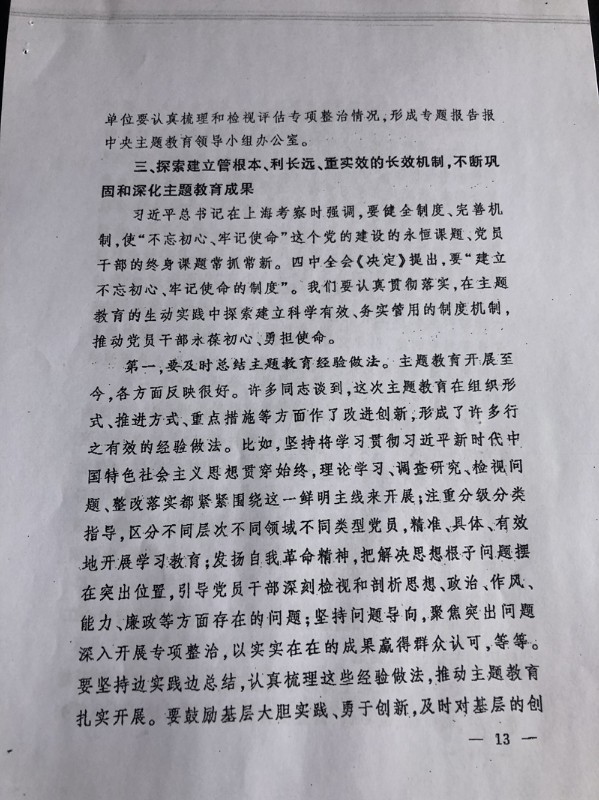 单位要认真梳理和检视评估专项整治情况,形成专题报告报
中央主题教育领导小组办公室。
三、探索建立管根本、利长远、重实效的长效机制,不断巩
固和深化主题教育成果
习近平总书记在上海考察时强调,要健全制度、完善机
制,使“不忘初心、牢记使命”这个党的建设的永恒课题、党员
干部的终身课题常抓常新。四中全会《决定》提出,要“建立
不忘初心、牢记使命的制度”。我们要认真贯彻落实,在主题
教育的生动实践中探索建立科学有效、务实管用的制度机制,
推动党员干部永葆初心、勇担使命。
第一,要及时总结主题教育经验做法。主题教育开展至
今,各方面反映很好。许多同志谈到,这次主题教育在组织形
式、推进方式、重点措施等方面作了改进创新,形成了许多行
之有效的经验做法。比如,坚持将学习贯彻习近平新时代中
国特色社会主义思想贯穿始终,理论学习、调查研究、检视问
题、整改落实都紧紧围绕这一鲜明主线来开展;注重分级分类
指导,区分不同层次不同领域不同类型党员,精准、具体、有效
地开展学习教育;发扬自我革命精神,把解决思想根子问题摆
在突出位置,引导党员干部深刻检视和剖析思想、政治、作风、
能力、廉政等方面存在的问题;坚持问题导向,聚焦突出问题
深入开展专项整治,以实实在在的成果赢得群众认可,等等。
要坚持边实践边总结,认真梳理这些经验做法,推动主题教育
扎实开展。要鼓励基层大胆实践、勇于创新,及时对基层的创
— 13 —